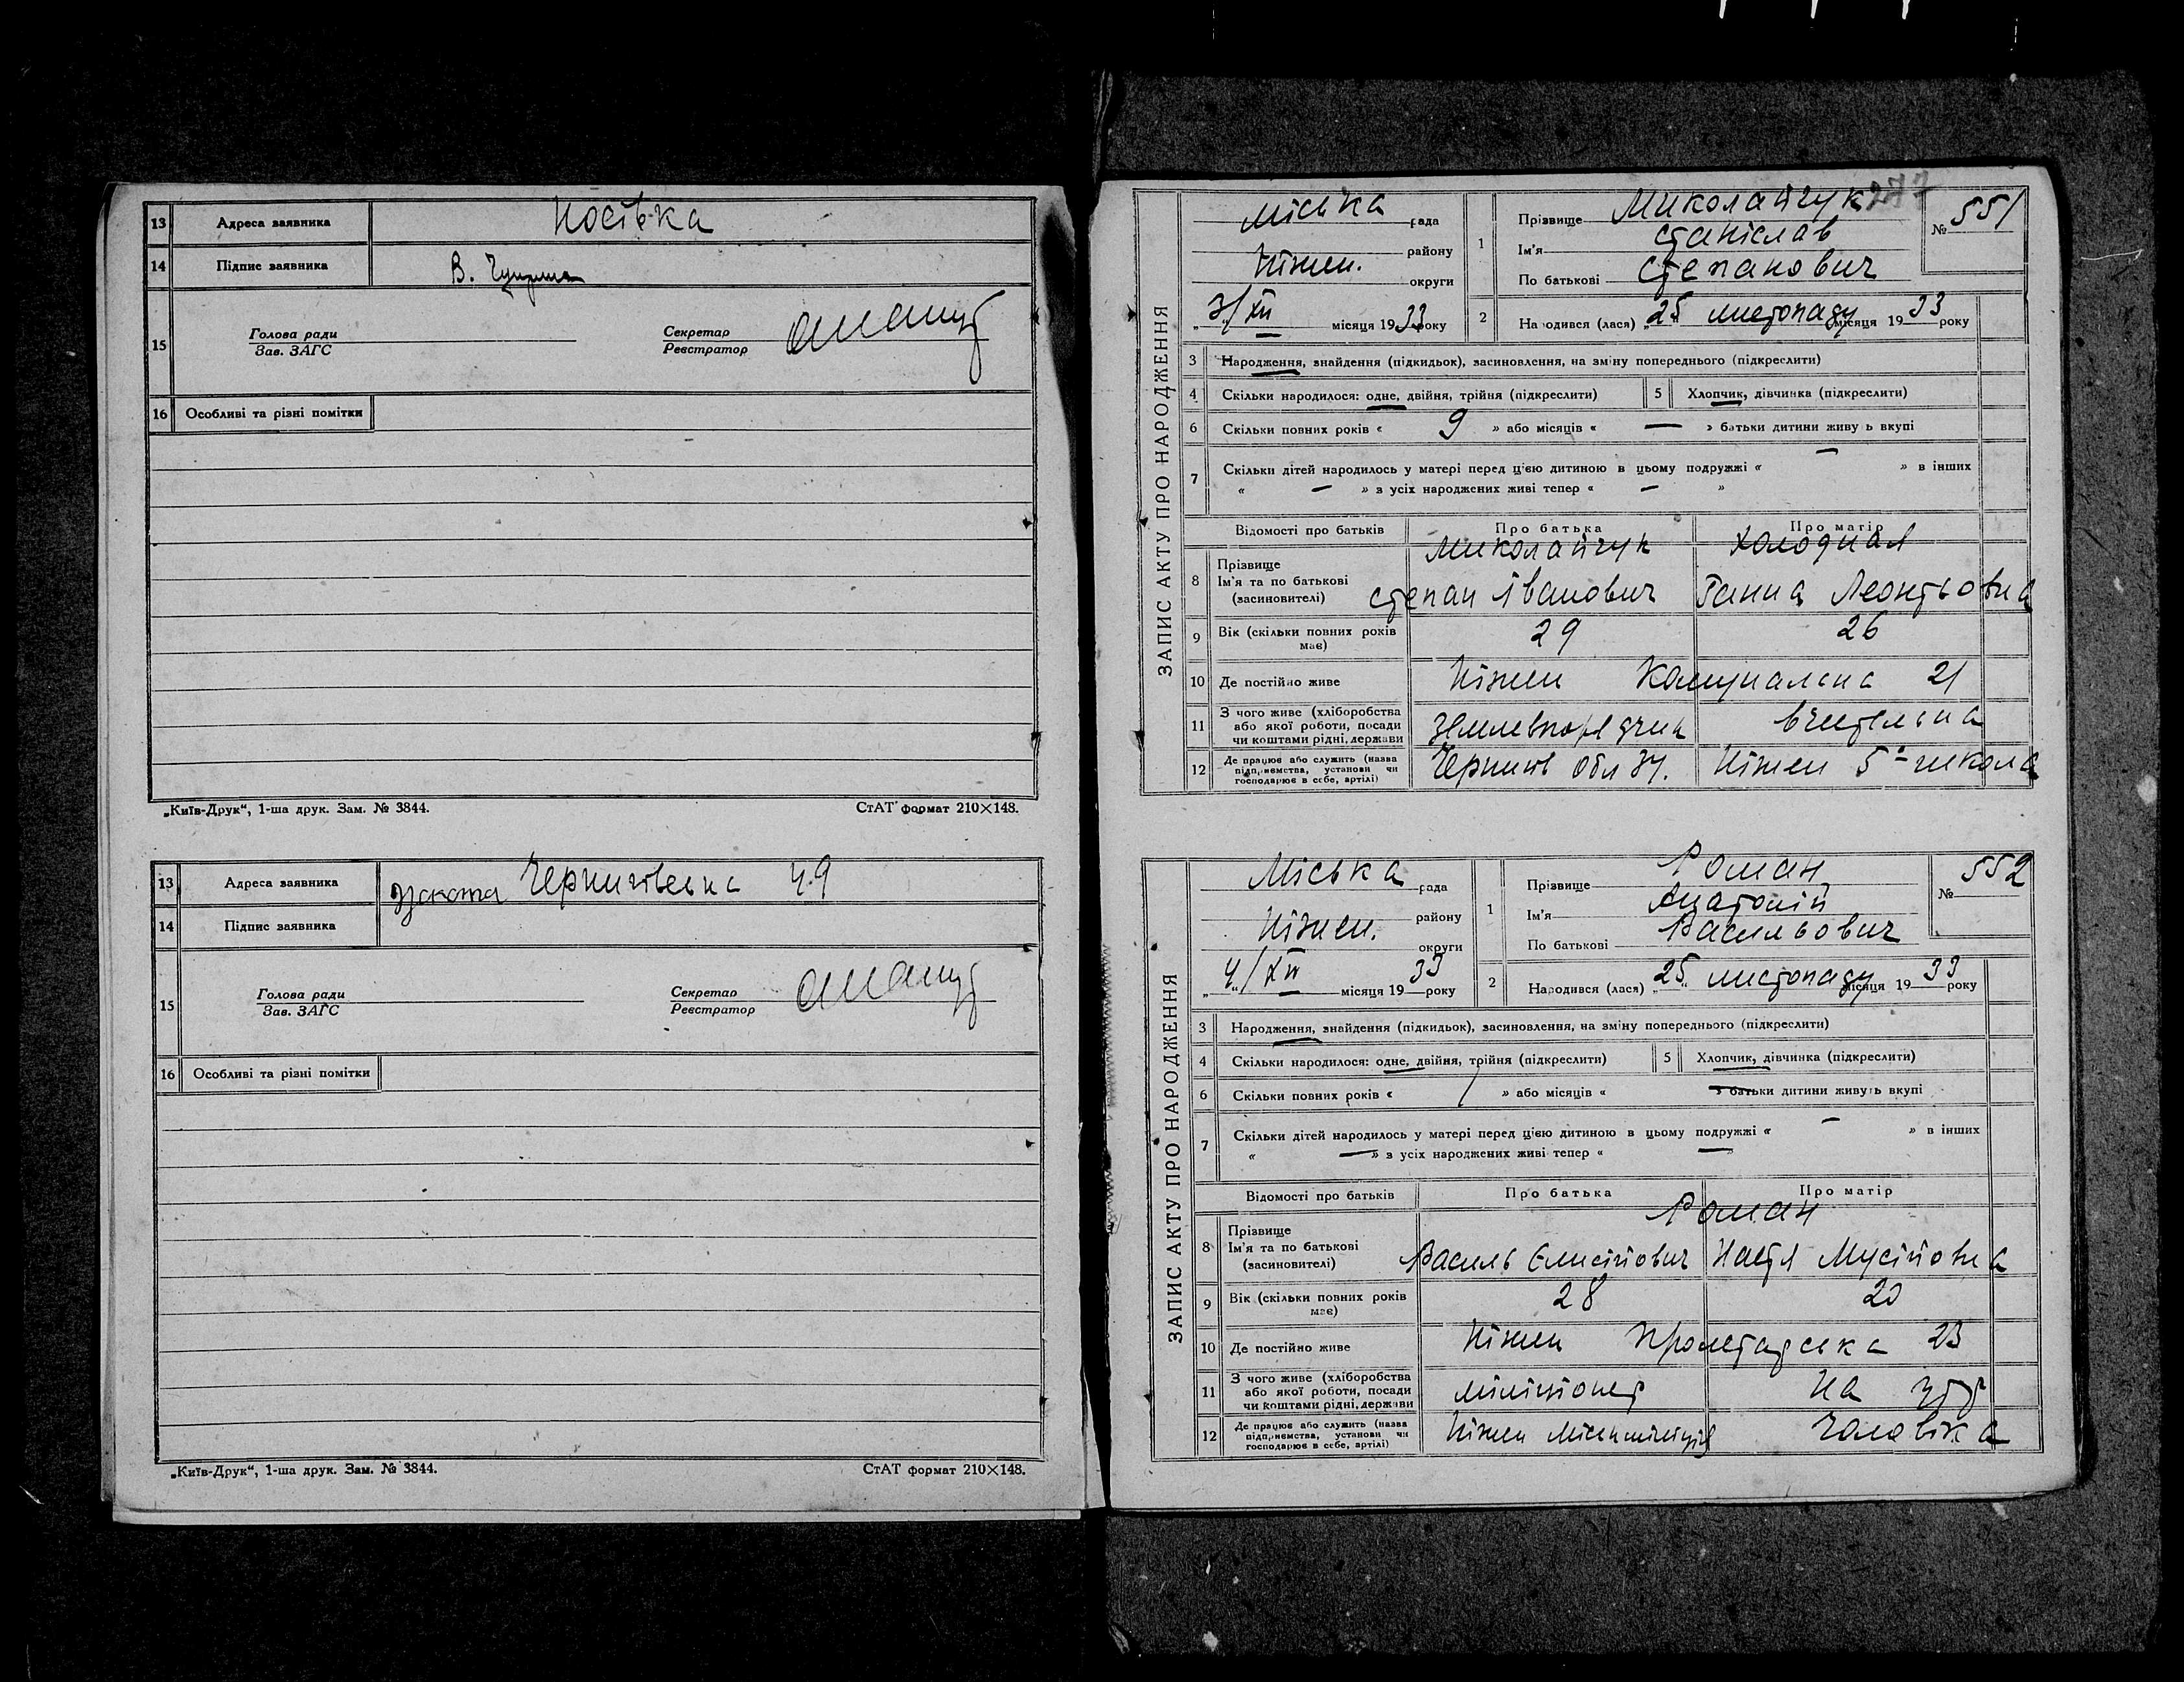 13 Адреса заявника Носівка
14 Підпис заявника В.
15 Голова ради
Зав. ЗАГС
Секретар
Реєстратор
16 Особливі та різні помітки
„Київ-Друк“, 1-ша друк. Зам. № 3844. СтАТ формат 210×148.
13 Адреса заявника Чернигівська ч. 9
14 Підпис заявника
15 Голова ради
Зав. ЗАГС
Секретар
Реєстратор
16 Особливі та різні помітки
„Київ-Друк“, 1-ша друк. Зам. № 3844. СтАТ формат 210×148.
277
ЗАПИС АКТУ ПРО НАРОДЖЕННЯ
Міська рада
району
Ніжен. округи
„3/XII місяця 1933 року
1 Прізвище Миколайчук
Ім'я Станіслав
По батькові Степанович
№ 551
2 Народився (лася) „25 листопаду місяця 1933 року
3 Народження, знайдення (підкидьок), засиновлення, на зміну попереднього (підкреслити)
4 Скільки народилося: одне, двійня, трійня (підкреслити) 5 Хлопчик, дівчинка (підкреслити)
6 Скільки повних років « 9 » або місяців « — » батьки дитини живуть вкупі
7 Скільки дітей народилось у матері перед цією дитиною в цьому подружжі « — » в інших
« — » з усіх народжених живі тепер « — »
Відомості про батьків Про батька Про матір
8 Прізвище Миколайчук Холодная
Ім'я та по батькові (засиновителі) Степан Іванович Ганна Леонтьовна
9 Вік (скільки повних років має) 29 26
10 Де постійно живе Ніжен Комунальна 21
11 З чого живе (хліборобства
або якої роботи, посади
чи коштами рідні, держави Землевпорядчик вчителька
12 Де працює або служить (назва
підприємства, установи чи
господарює в себе, артілі) Чернигів Обл ЗУ. Ніжен 5а школа
ЗАПИС АКТУ ПРО НАРОДЖЕННЯ
Міська рада
району
Ніжен. округи
„4„/XII місяця 1933 року
1 Прізвище Роман
Ім'я Анатолій
По батькові Васильович
№ 552
2 Народився (лася) „25„ листопаду місяця 1933 року
3 Народження, знайдення (підкидьок), засиновлення, на зміну попереднього (підкреслити)
4 Скільки народилося: одне, двійня, трійня (підкреслити) 5 Хлопчик, дівчинка (підкреслити)
6 Скільки повних років « 1 » або місяців « — » батьки дитини живуть вкупі
7 Скільки дітей народилось у матері перед цією дитиною в цьому подружжі « — » в інших
« — » з усіх народжених живі тепер « — »
Відомості про батьків Про батька Про матір
8 Прізвище Роман
Ім'я та по батькові (засиновителі) Василь Єлисійович Настя Мусійовна
9 Вік (скільки повних років має) 28 20
10 Де постійно живе Ніжен Пролетарська 23
11 З чого живе (хліборобства
або якої роботи, посади
чи коштами рідні, держави міліціонер На утр
12 Де працює або служить (назва
підприємства, установи чи
господарює в себе, артілі) Ніжен Міськміліція чоловіка